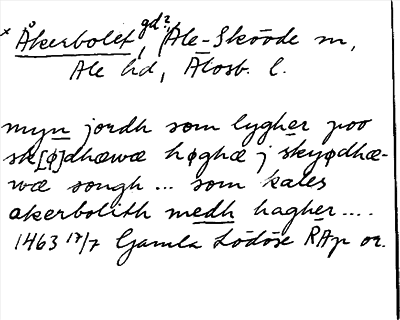 x Åkerbolet, gd?, Ale-Skövde sn,
Ale hd, Älvsb. l.
myn jordh som lygher poo
sk[ø]dhæwæ høghæ j skyødhæ-
wæ songh ... som kales
akerbolith medh hagher ....
1463 17/7 Gamla Lödöse RAp or.